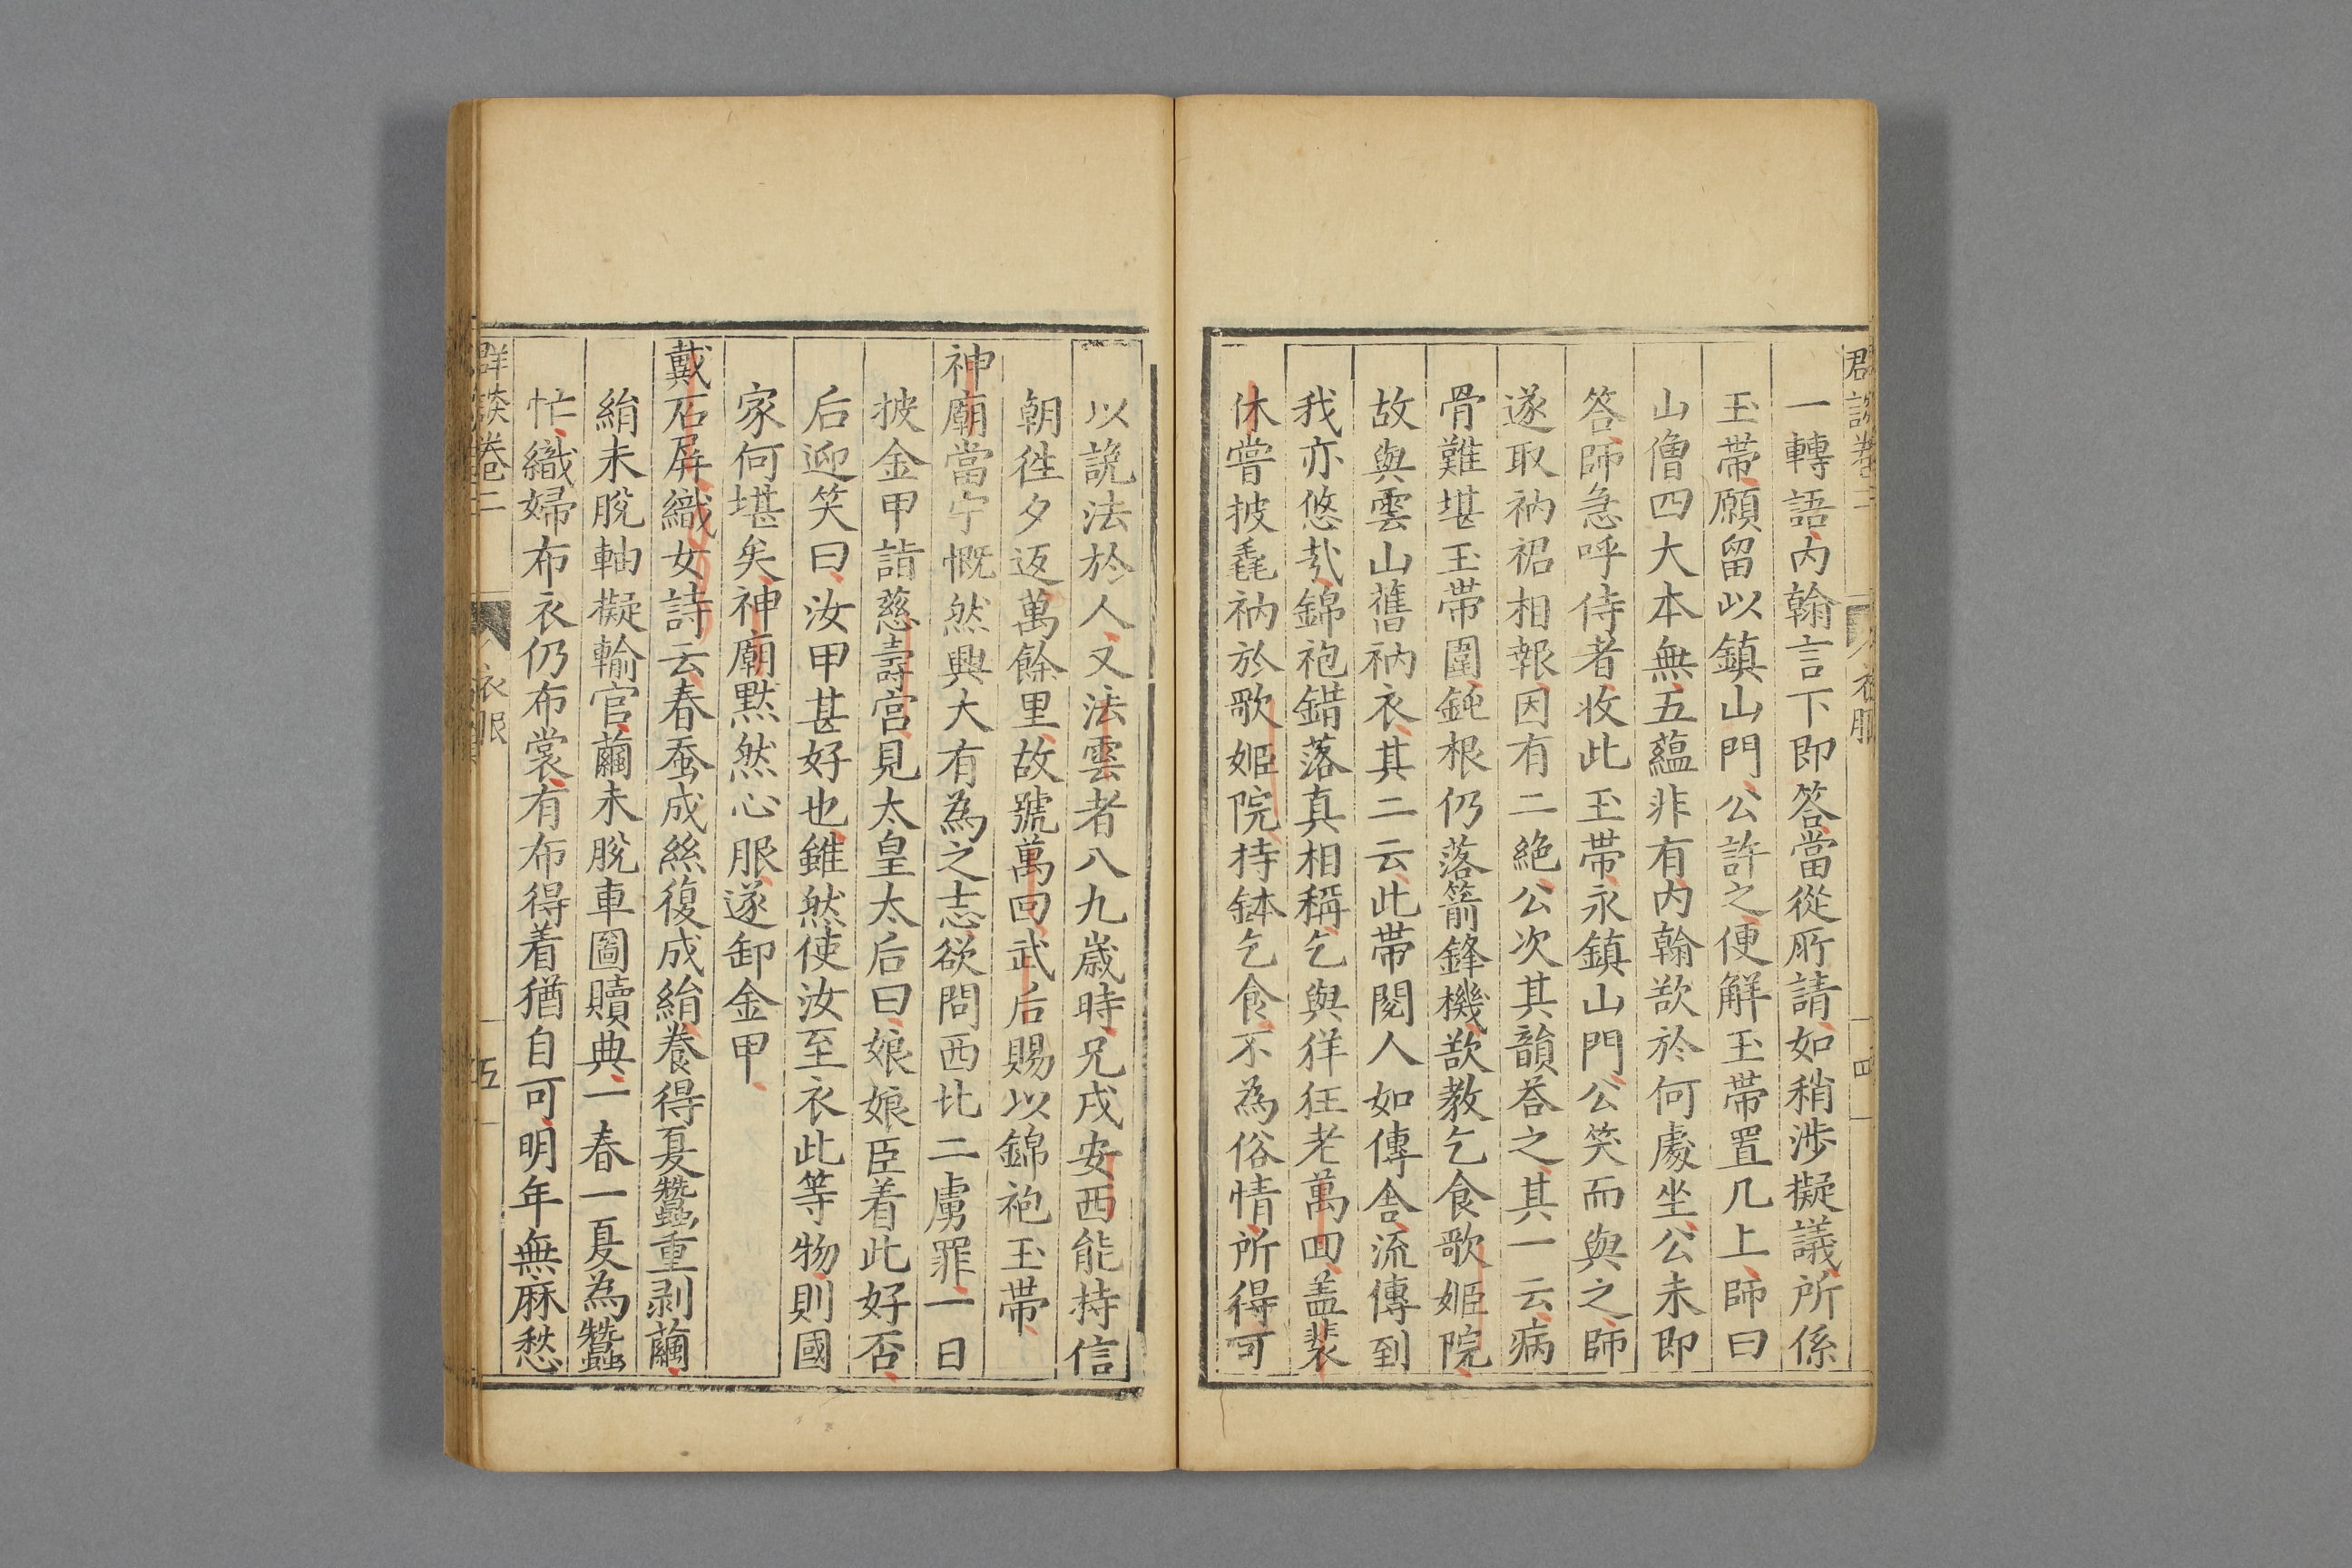 群談卷二
衣服
四
一轉語内翰言下即答當從所請如稍涉擬議所係
玉帶願留以鎮山門公許之便解玉帶置几上師曰
山僧四大本無五蘊非有内翰欲於何處坐公未即
答師急呼侍者收此玉帶永鎮山門公笑而與之師
遂取衲裙相報因有二絶公次其韻荅之其一云病
骨難堪玉帶圍鈍根仍落箭鋒機欲教乞食歌姬院
故與雲山舊衲衣其二云此帶閱人如傳舍流傳到
我亦悠哉錦袍錯落真相稱乞與徉狂老萬回盖裴
休嘗披毳衲於歌姬院持鉢乞食不為俗情所得可
以說法於人又法雲者八九歲時兄戍安西能持信
朝徃夕返萬餘里故號萬回武后賜以錦袍玉帶
神廟當宁慨然興大有為之志欲問西北二虜罪一日
披金甲詣慈壽宮見太皇太后曰娘娘臣着此好否
后迎笑曰汝甲甚好也雖然使汝至衣此等物則國
家何堪矣神廟黙然心服遂卸金甲
戴石屏織女詩云春蚕成絲復成絹養得夏蠶重剥繭
絹未脫軸擬輸官繭未脫車圖贖典一春一夏為蠶
忙織婦布衣仍布裳有布得着猶自可明年無麻愁
群談卷二
衣服
五